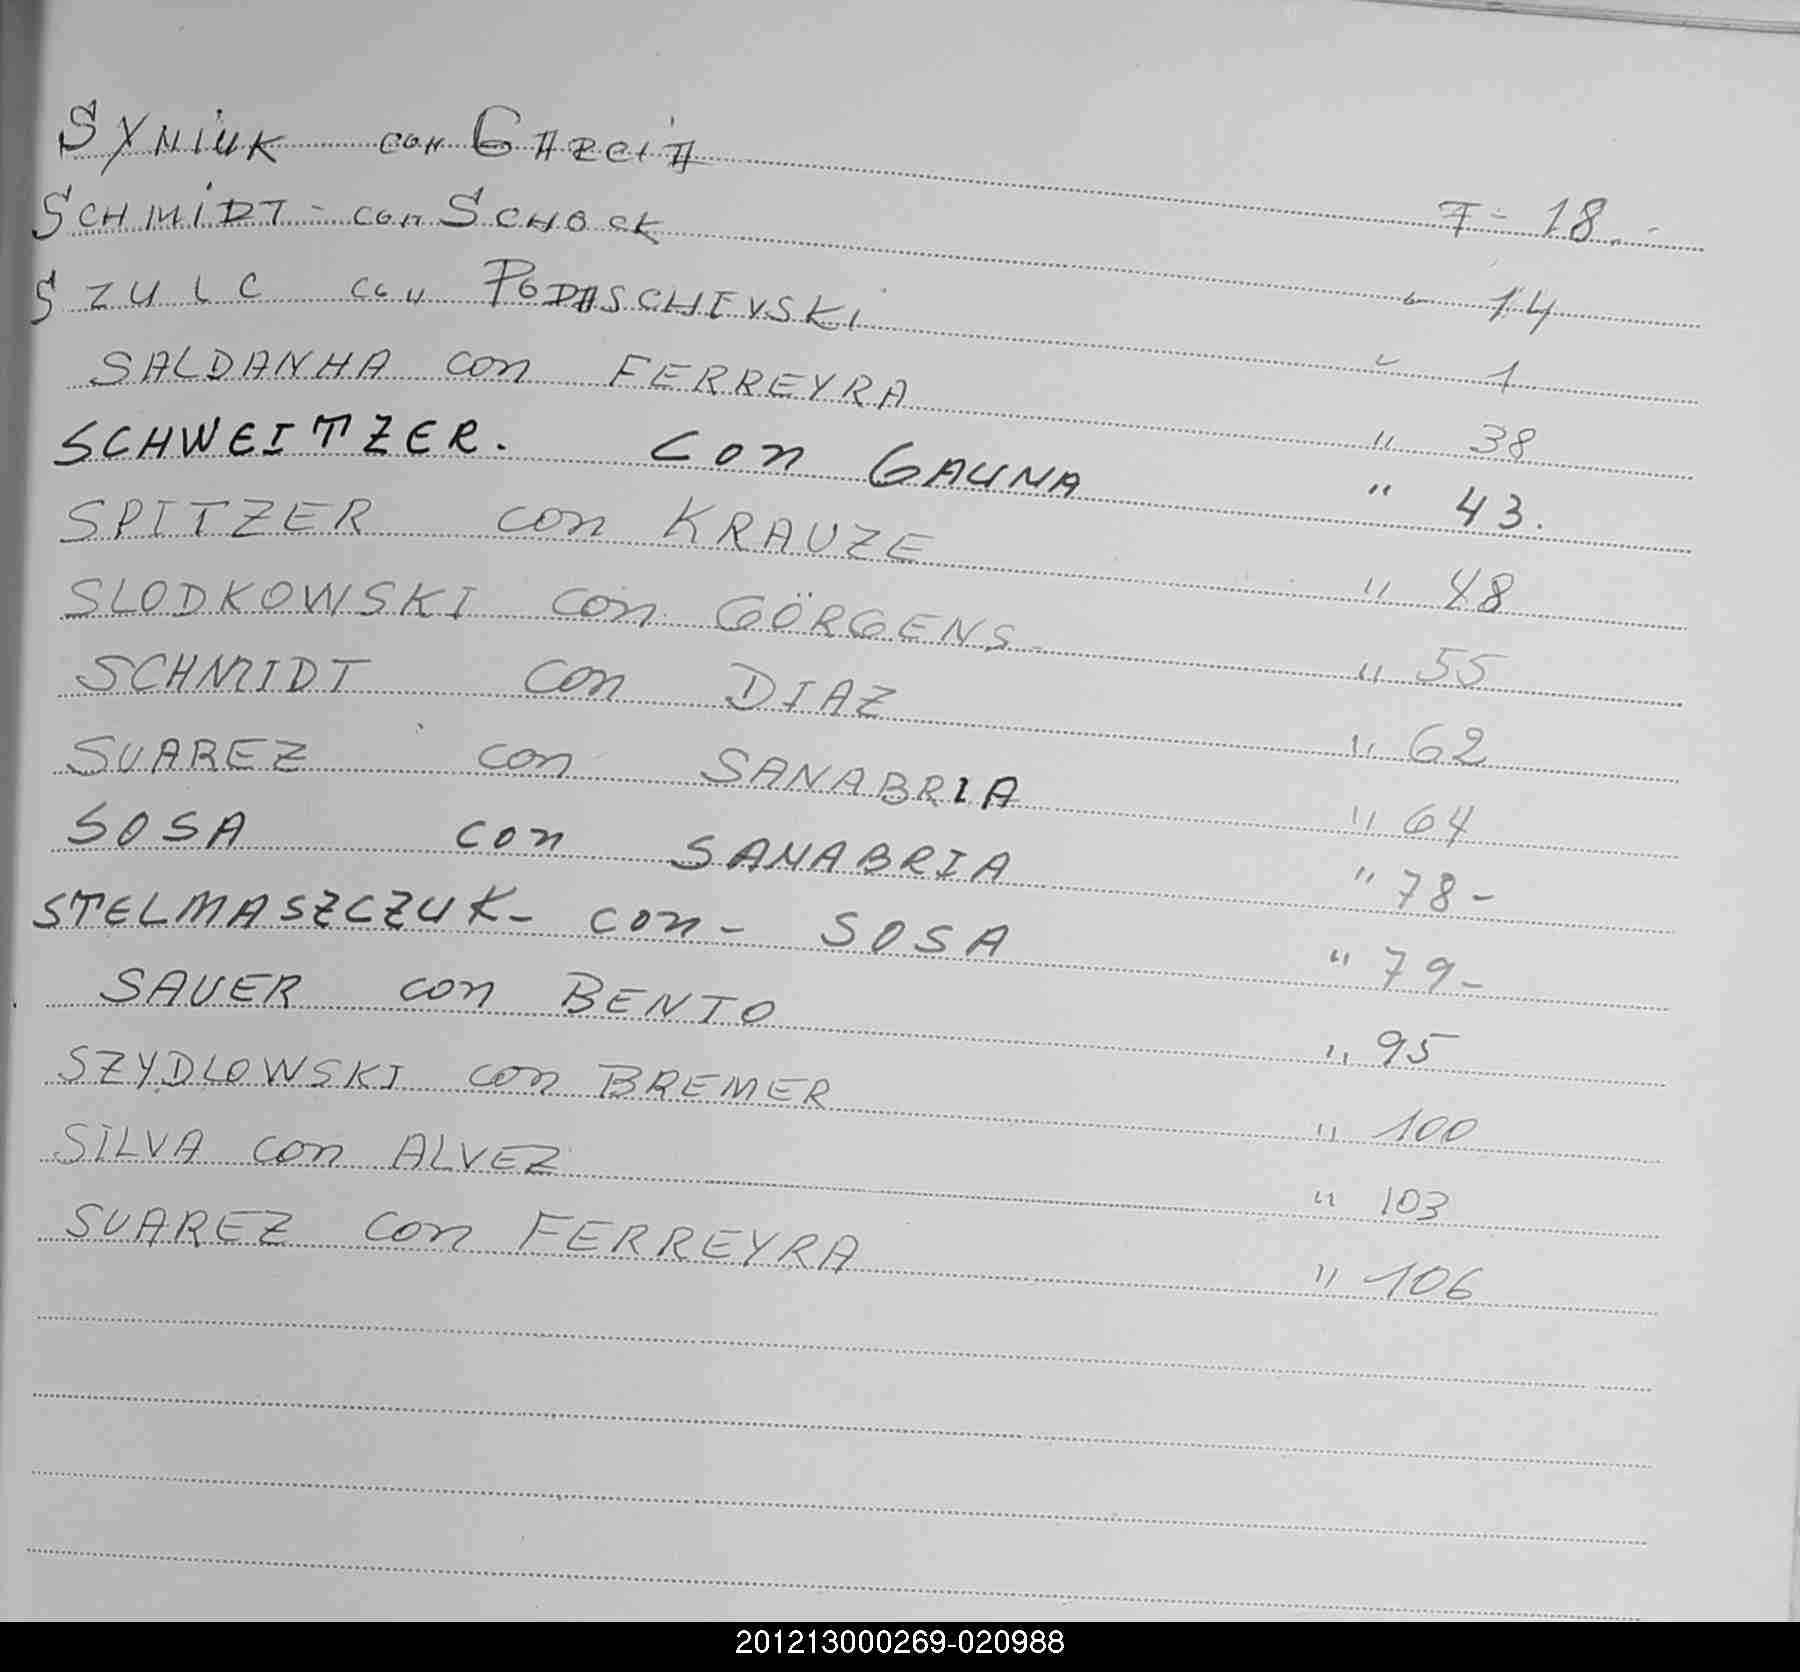 SYNIUK con GARCIA F= 18.-
SCHMIDT - con SCHOCK " 14
SZULC con PODASCHEVSKI " 1
SALDANHA con FERREYRA " 38
SCHWEITZER. con GAUNA " 43.
SPITZER con KRAUZE " 48
SLODKOWSKI con GÖRGENS - " 55
SCHMIDT con DIAZ " 62
SUAREZ con SANABRIA " 64
SOSA con SANABRIA " 78 -
STELMASZCZUK - con - SOSA " 79 -
SAUER con BENTO " 95
SZYDLOWSKI con BREMER " 100
SILVA con ALVEZ " 103
SUAREZ con FERREYRA " 106
201213000269-020988